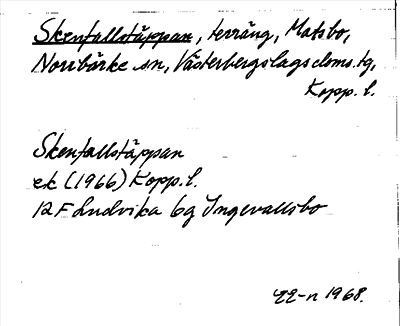 Skenfallstäppan, terräng, Matsbo,
Norrbärke sn, Västerbergslags doms. tg,
Kopp. l.
Skenfallstäppan
ek (1966) Kopp. l.
12 F Ludvika 6g Ingevallsbo
1968.